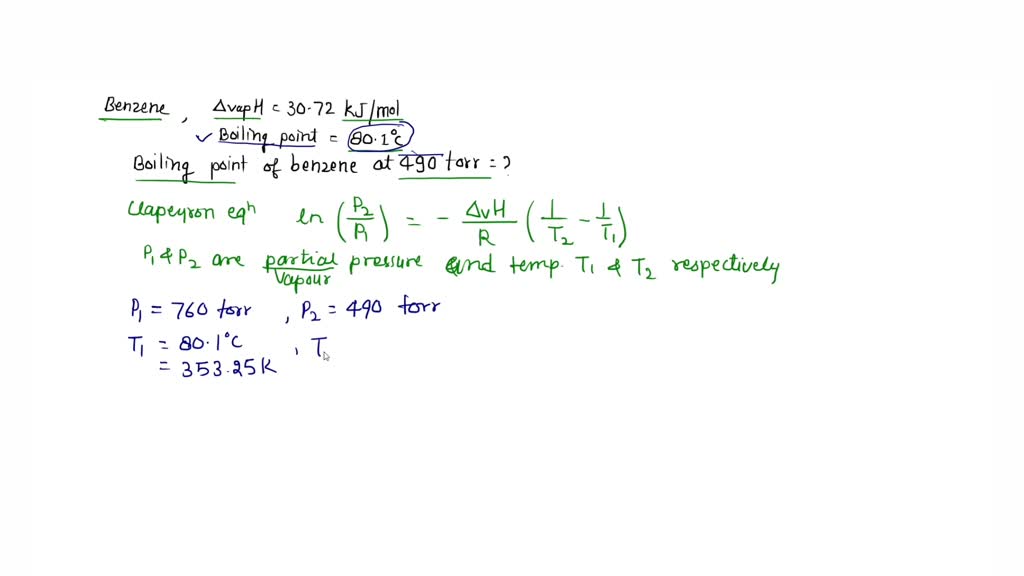 Benzene, ΔvapH = 30.72 kJ/mol
✓ Boiling point = 80.1°C
Boiling point of benzene at 490 torr = ?
Clapeyron eqn ln (P2/P1) = - ΔvH/R (1/T2 - 1/T1)
P1 & P2 are partial pressure and temp. T1 & T2 respectively
Vapour
P1 = 760 torr , P2 = 490 torr
T1 = 80.1°C , T
= 353.25K